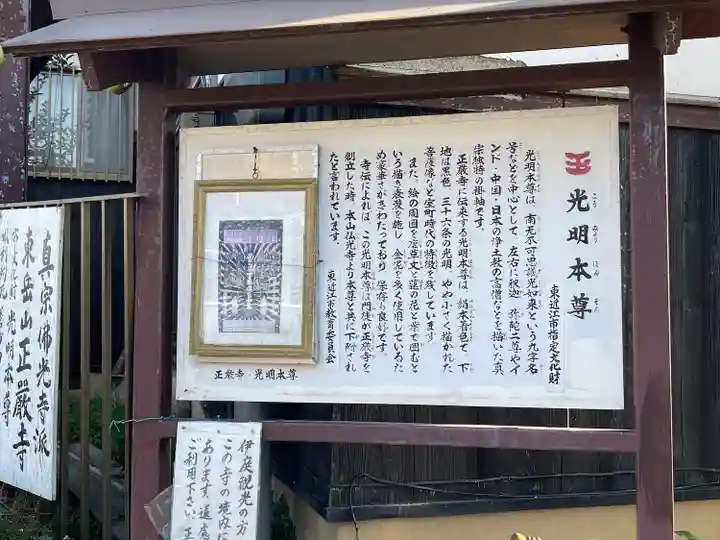 光明本尊
こう みょう ほん ぞん
東近江市指定文化財
光明本尊は、南无不可思議光如来という九字名
号などを中心として、左右に釈迦・弥陀二尊やイ
ンド・中国・日本の浄土教の高僧などを描いた真
宗独特の掛軸です。
正厳寺に伝来する光明本尊は、絹本着色で、下
地は黒色、三十六条の光明、やや小さく描かれた
菩薩像など室町時代の特徴を残しています。
また、絵の周囲を唐草文と蓮の花と葉で囲むと
いう描き表装を施し、金泥を多く使用しているた
め豪華さがきわだっており、保存も良好です。
寺伝によれば、この光明本尊は門徒が正厳寺を
創立した時、本山仏光寺より本尊と共に下附され
たと言われています。
東近江市教育委員会
正厳寺・光明本尊
真宗佛光寺派
東岳山正厳寺
光明本尊
伊庭観光の方
この寺の境内に
あります。遠慮
ご利用下さい。正